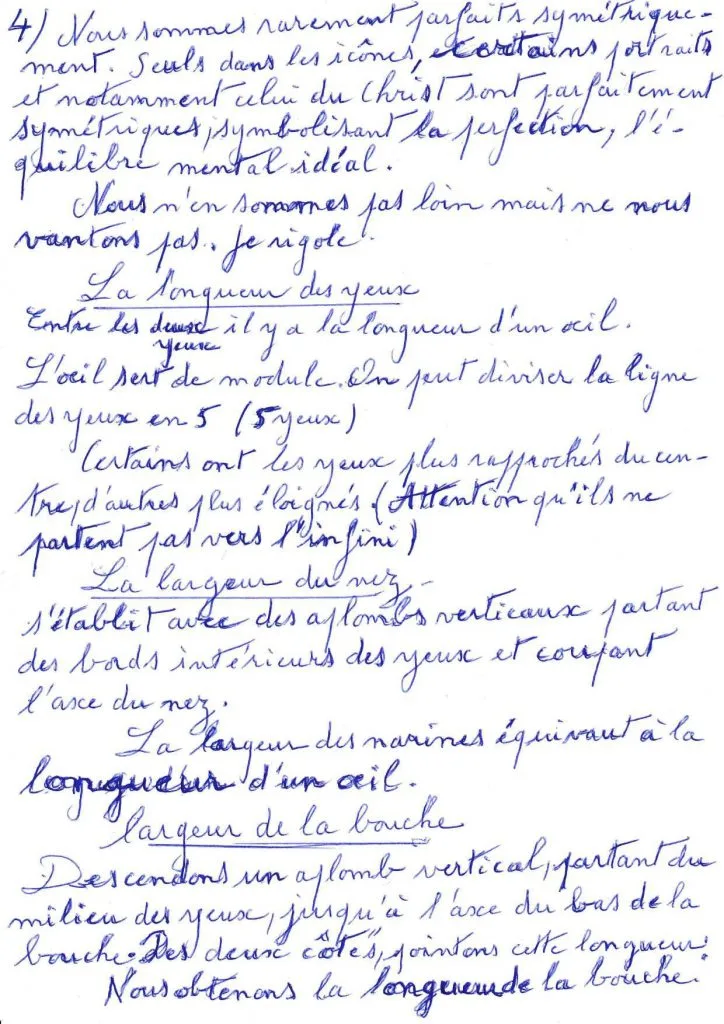 4) Nous sommes rarement parfaits symétrique-
ment. Seuls dans les icônes, certains portraits
et notamment celui du Christ sont parfaitement
symétriques, symbolisant la perfection, l'é-
quilibre mental idéal.
Nous n'en sommes pas loin mais ne nous
vantons pas. Je rigole.
La longueur des yeux
Entre les deux il y a la longueur d'un œil.
yeux
L'œil sert de module. On peut diviser la ligne
des yeux en 5 (5 yeux)
Certains ont les yeux plus rapprochés du cen-
tre, d'autres plus éloignés. (Attention qu'ils ne
partent pas vers l'infini)
La largeur du nez -
s'établit avec des aplombs verticaux partant
des bords intérieurs des yeux et coupant
l'axe du nez.
La largeur des narines équivaut à la
longueur d'un œil.
largeur de la bouche
Descendons un aplomb vertical, partant du
milieu des yeux, jusqu'à l'axe du bas de la
bouche. Des deux côtés, pointons cette longueur.
Nous obtenons la longueur de la bouche.